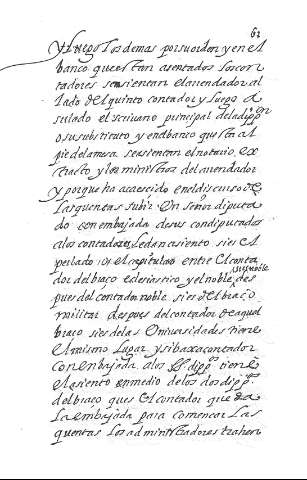 62
Y luego los demas por su orden y en el
banco que estan asentados los con
tadores se asientan el arrendador al
lado del quinto contador y luego a
su lado el scriuano principal de la dip.on
o su substituto y en el banco que esta al
pie de la mesa se asientan el notario ex
tracto y los ministros del arrendador
y porque ha acaescido en el discurso de
las quentas subir un señor diputa
do con embajada de sus condiputados
a los contadores le dan asiento si es el
perlado o el capitular entre el conta
dor del braço eclesiastico y el noble
si es noble des
pues del contador noble si es del braço
militar despues del contador de aquel
braço si es de las Uniuersidades tiene
el mismo lugar y si baxa contador
con embajada a los SS. dip.os tiene
el asiento en medio de los dos dip.os
del braço que es el contador que da
la embajada para començar las
quentas los administradores trahen